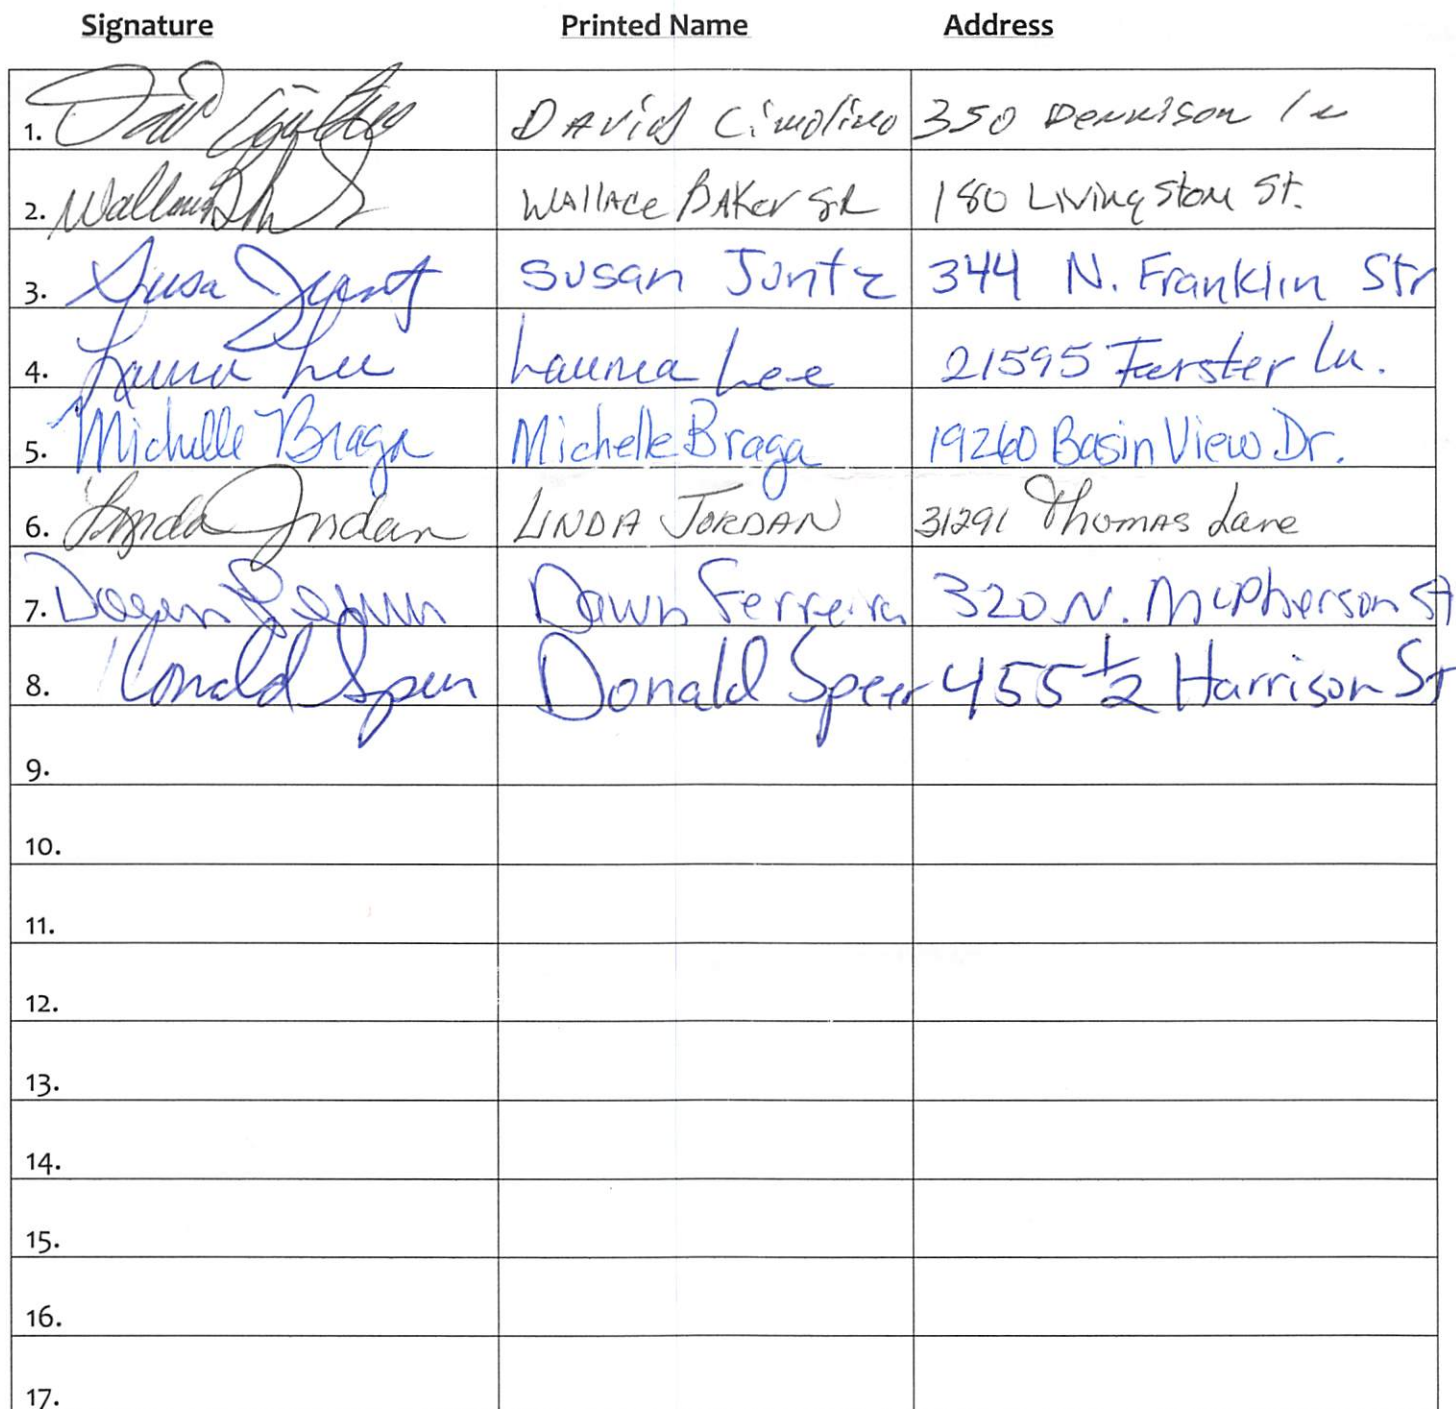 Signature Printed Name Address
1. DAVid Cimolino 350 Dennison ln
2. WALLACE BAKer SR 180 Livingston St.
3. Susan Juntz 344 N. Franklin Str
4. Launea Lee 21595 Foerster Ln.
5. Michelle Braga Michelle Braga 19260 Basin View Dr.
6. Linda Jordan LINDA JORDAN 31291 Thomas Lane
7. Dawn Ferreira 320 N. McPherson St
8. Donald Speer Donald Speer 455 1/2 Harrison St
9.
10.
11.
12.
13.
14.
15.
16.
17.